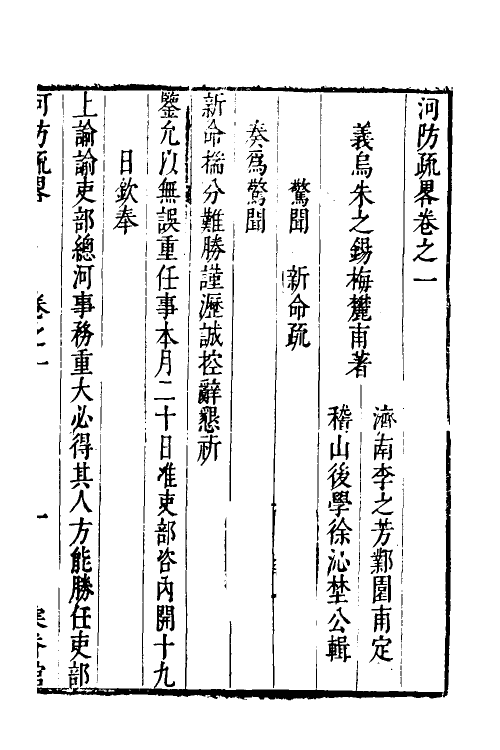 河防疏畧卷之一
濟南李之芳鄴園甫定
義烏朱之錫梅麓甫著
稽山後學徐沁埜公輯
驚聞　新命疏
奏爲驚聞
新命揣分難勝謹瀝誠控辭懇祈
鑒允以無誤重任事本月二十日准吏部咨內開十九
日欽奉
上諭諭吏部總河事務重大必得其人方能勝任吏部
河防疏畧　卷之一　一